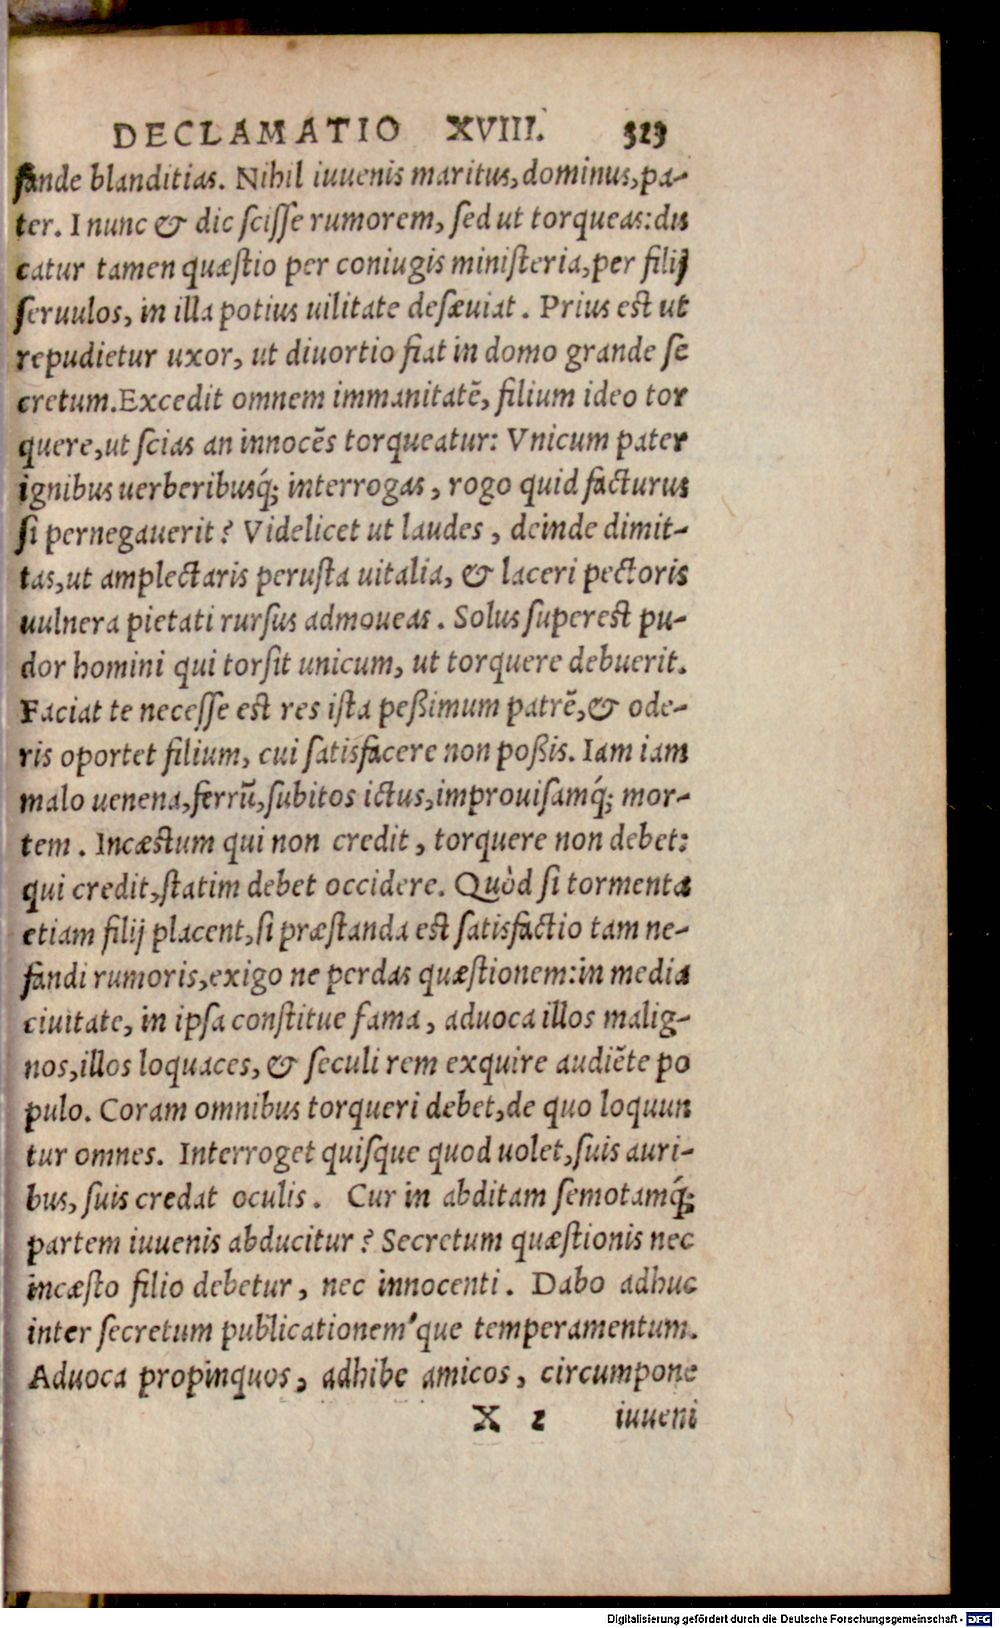 DECLAMATIO XVIII. 323
fande blanditias. Nihil iuuenis maritus, dominus, pa-
ter. I nunc & dic scisse rumorem, sed ut torqueas: du
catur tamen quæstio per coniugis ministeria, per filij
seruulos, in illa potius uilitate desæuiat. Prius est ut
repudietur uxor, ut diuortio fiat in domo grande se
cretum. Excedit omnem immanitatē, filium ideo tor
quere, ut scias an innocēs torqueatur: Vnicum pater
ignibus uerberibusq́; interrogas, rogo quid facturus
si pernegauerit? Videlicet ut laudes, deinde dimit-
tas, ut amplectaris perusta uitalia, & laceri pectoris
uulnera pietati rursus admoueas. Solus superest pu-
dor homini qui torsit unicum, ut torquere debuerit.
Faciat te necesse est res ista peßimum patrē, & ode-
ris oportet filium, cui satisfacere non poßis. Iam iam
malo uenena, ferrū, subitos ictus, improuisamq́; mor-
tem. Incæstum qui non credit, torquere non debet:
qui credit, statim debet occidere. Quòd si tormenta
etiam filij placent, si præstanda est satisfactio tam ne-
fandi rumoris, exigo ne perdas quæstionem: in media
ciuitate, in ipsa constitue fama, aduoca illos malig-
nos, illos loquaces, & seculi rem exquire audiēte po
pulo. Coram omnibus torqueri debet, de quo loquun
tur omnes. Interroget quisque quod uolet, suis auri-
bus, suis credat oculis. Cur in abditam semotamq́;
partem iuuenis abducitur? Secretum quæstionis nec
incæsto filio debetur, nec innocenti. Dabo adhuc
inter secretum publicationem'que temperamentum.
Aduoca propinquos, adhibe amicos, circumpone
X 2 iuueni
Digitalisierung gefördert durch die Deutsche Forschungsgemeinschaft - DFG